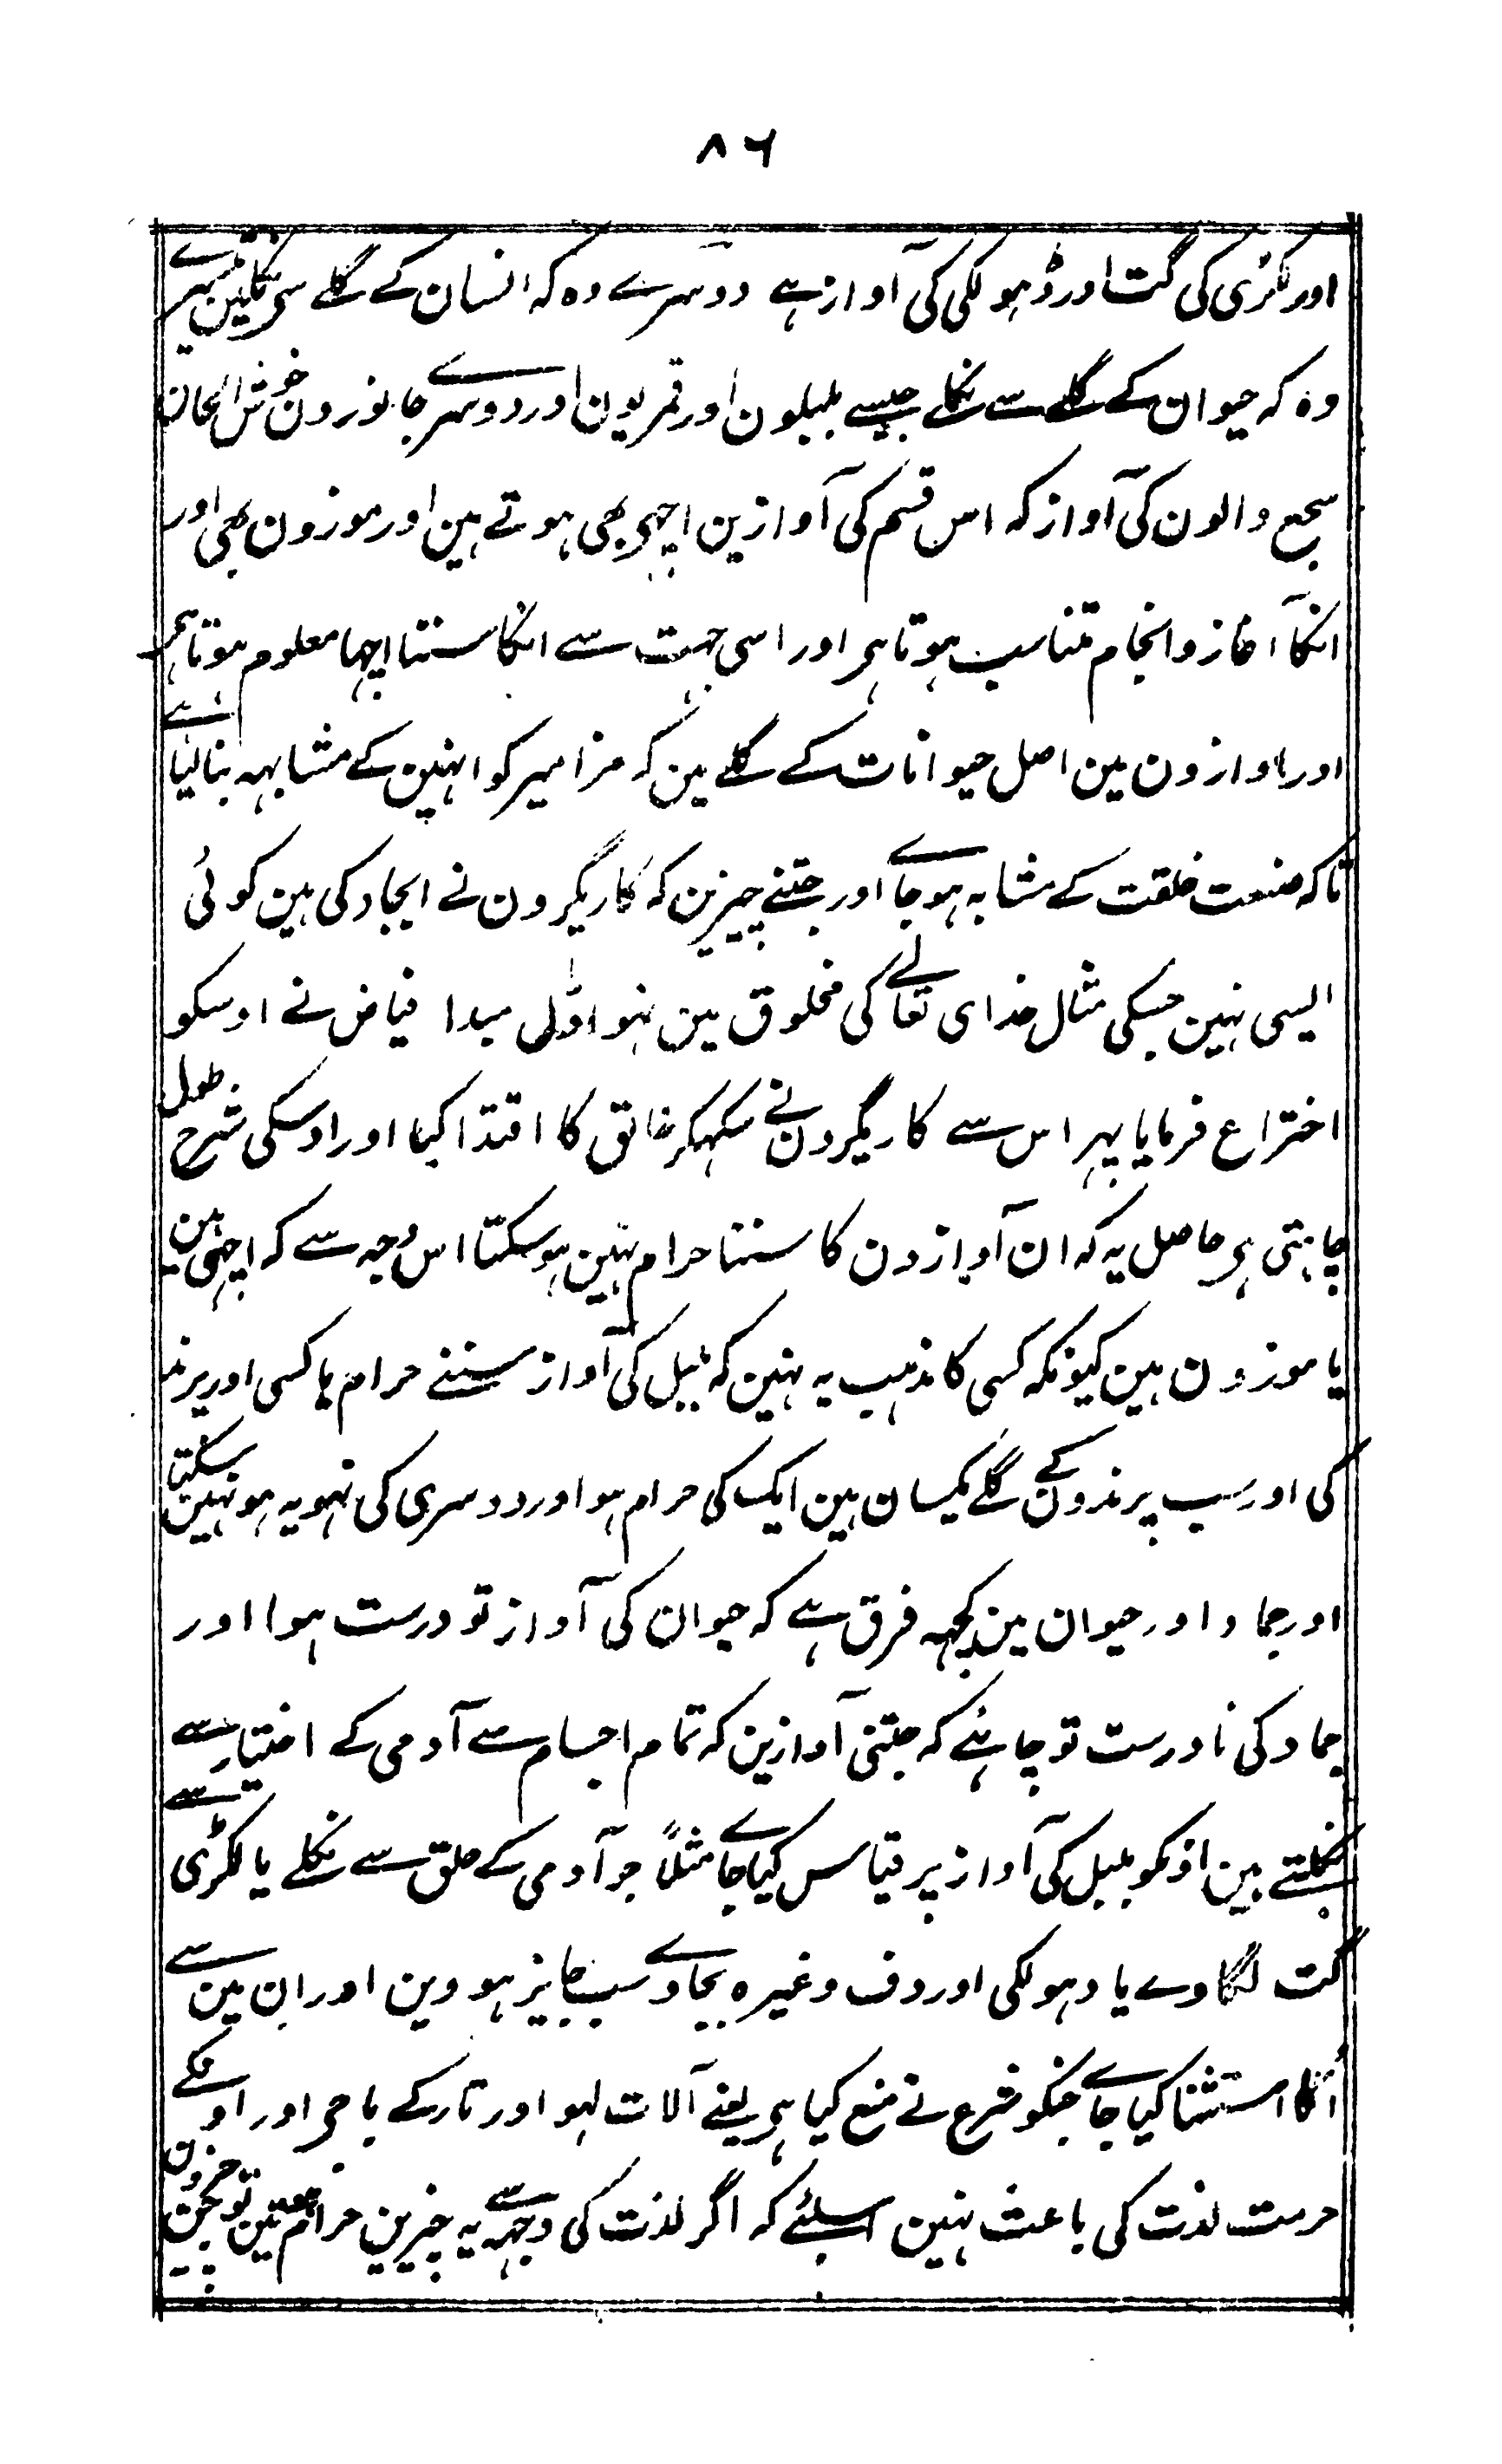 ۸۶
اور لکڑی کی گت اور ڈہولکی کی آواز ہے دوسرے وہ کہ انسان کے گلے سی نکلین تیسرے
وہ کہ حیوان کے گلے سے نکلے جیسے بلبلون اور قمریون اور دوسرے جانورون خوش الحان
سجع والون کی آواز کہ اس قسم کی آوازین اچہی بھی ہوتے ہین اور موزون بھی اور
انکا آغاز و انجام متناسب ہوتا ہی اور اسی جہت سے انکا سننا اچہا معلوم ہوتا ہی
اور آوازون مین اصل حیوانات کے گلے ہین کہ مزامیر کو انہین کے مشابہہ بنالیا ہے
تاکہ صنعت خلقت کے مشابہ ہو جاے اور جتنے چیزین کہ کاریگرون نے ایجاد کی ہین کوئی
ایسی نہین جسکی مثال خدای تعالے کی مخلوق مین نہو اوّل مبدا فیاض نے اوسکو
اختراع فرمایا پہر اس سے کاریگرون نے سکہکر خالق کا اقتدا کیا اور اوسکی شرح طول
چاہتی ہی حاصل یہ کہ ان آوازون کا سننا حرام نہین ہوسکتا اس وجہ سے کہ اچہی ہین
یا موزون ہین کیونکہ کسی کا مذہب یہ نہین کہ بلبل کی آواز سننے حرام ہا کسی اور پرند
کی اور سب پرندون کے گلے یکسان ہین ایک کی حرام ہو اور دوسری کی نہو یہ ہو نہین سکتا
اور جماد اور حیوان مین کچہہ فرق ہے کہ حیوان کی آواز تو درست ہوا اور
جماد کی نادرست تو چاہئے کہ جتنی آوازین کہ تمام اجسام سے آدمی کے اختیار سے
نکلتے ہین اونکو بلبل کی آواز پر قیاس کیا جاے مثلاً جو آدمی کے حلق سے نکلے یا لکڑی سے
گت لگاوے یا دہولکی اور دف وغیرہ بجاوے سب جایز ہووین اور ان مین سے
اُنکا استثنا کیا جاے جنکو شرع نے منع کیا ہی یعنے آلات لہو اور تار کے باجی اور اونکے
حرمت لذت کی باعث نہین اسلئے کہ اگر لذت کی وجہہ سے یہ چیزین حرام ہوتین تو جن چیزون